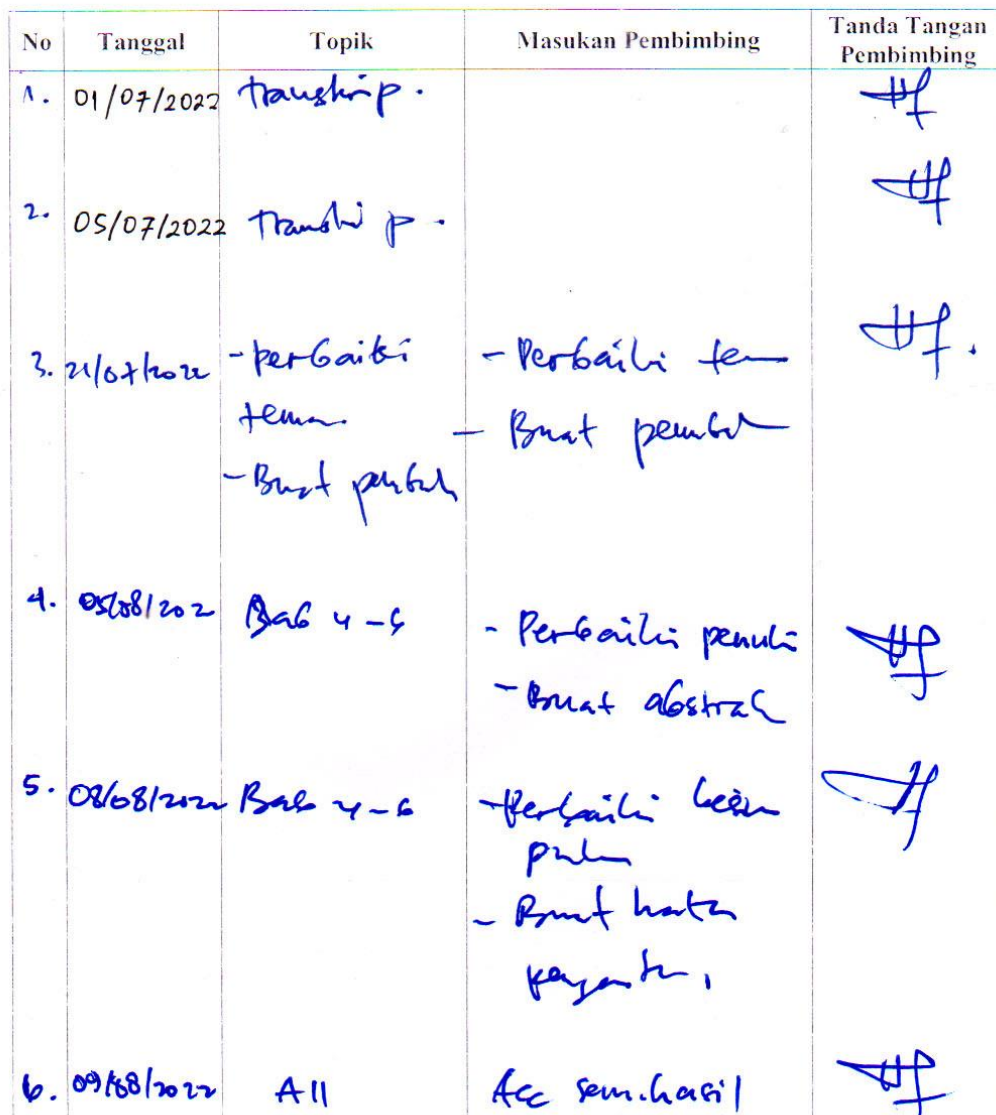 No Tanggal Topik Masukan Pembimbing Tanda Tangan Pembimbing
1. 01/07/2022 transkrip.
2. 05/07/2022 transkrip.
3. 21/07/2022 - perbaiki - Perbaiki
tema
- Buat
- Buat
4. 05/08/202 Bab 4 - Perbaiki
- Buat abstrak
5. 08/08/2022 Bab 4-6 - Perbaiki
- Buat kata
6. 09/08/2022 All Acc sem.hasil